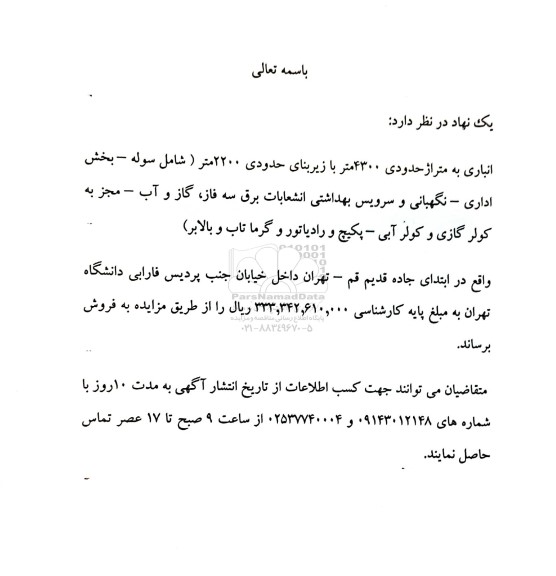 باسمه تعالی
یک نهاد در نظر دارد:
انباری به متراژحدودی ۴۳۰۰متر با زیربنای حدودی ۲۲۰۰متر ( شامل سوله – بخش
اداری – نگهبانی و سرویس بهداشتی انشعابات برق سه فاز، گاز و آب – مجز به
کولر گازی و کولر آبی – پکیج و رادیاتور و گرما تاب و بالابر)
واقع در ابتدای جاده قدیم قم – تهران داخل خیابان جنب پردیس فارابی دانشگاه
ParsNamadData
تهران به مبلغ پایه کارشناسی ۳۳۳,۳۴۲,۶۱۰,۰۰۰ ریال را از طریق مزایده به فروش
پایگاه اطلاع رسانی مناقصه و مزایده
۰۲۱-۸۸۳۴۹۶۷۰-۵
برساند.
متقاضیان می توانند جهت کسب اطلاعات از تاریخ انتشار آگهی به مدت ۱۰روز با
شماره های ۰۹۱۴۳۰۱۲۱۴۸ و ۰۲۵۳۷۷۴۰۰۰۴ از ساعت ۹ صبح تا ۱۷ عصر تماس
حاصل نمایند.